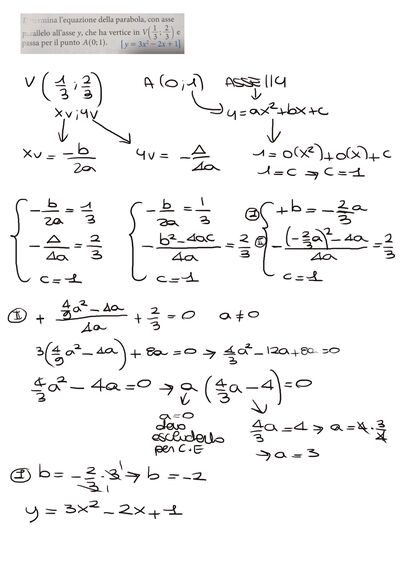 Determina l'equazione della parabola, con asse
parallelo all'asse y, che ha vertice in V(1/3; 2/3) e
passa per il punto A(0; 1). [y = 3x² − 2x + 1]
V(1/3; 2/3) A(0; 1) ASSE // y
xv; yv y = ax² + bx + c
xv = −b/2a yv = −Δ/4a 1 = 0(x²) + 0(x) + c
1 = c → c = 1
{ −b/2a = 1/3 { −b/2a = 1/3 I { +b = −2/3 a
−Δ/4a = 2/3 −(b² − 4ac)/4a = 2/3 II −((−2/3 a)² − 4a)/4a = 2/3
c = 1 c = 1 c = 1
II + (4/9 a² − 4a)/4a + 2/3 = 0 a ≠ 0
3(4/9 a² − 4a) + 8a = 0 → 4/3 a² − 12a + 8a = 0
4/3 a² − 4a = 0 → a(4/3 a − 4) = 0
a = 0
devo
escluderlo
per C.E
4/3 a = 4 → a = 4 · 3/4
→ a = 3
I b = −2/3 · 3 → b = −2
y = 3x² − 2x + 1